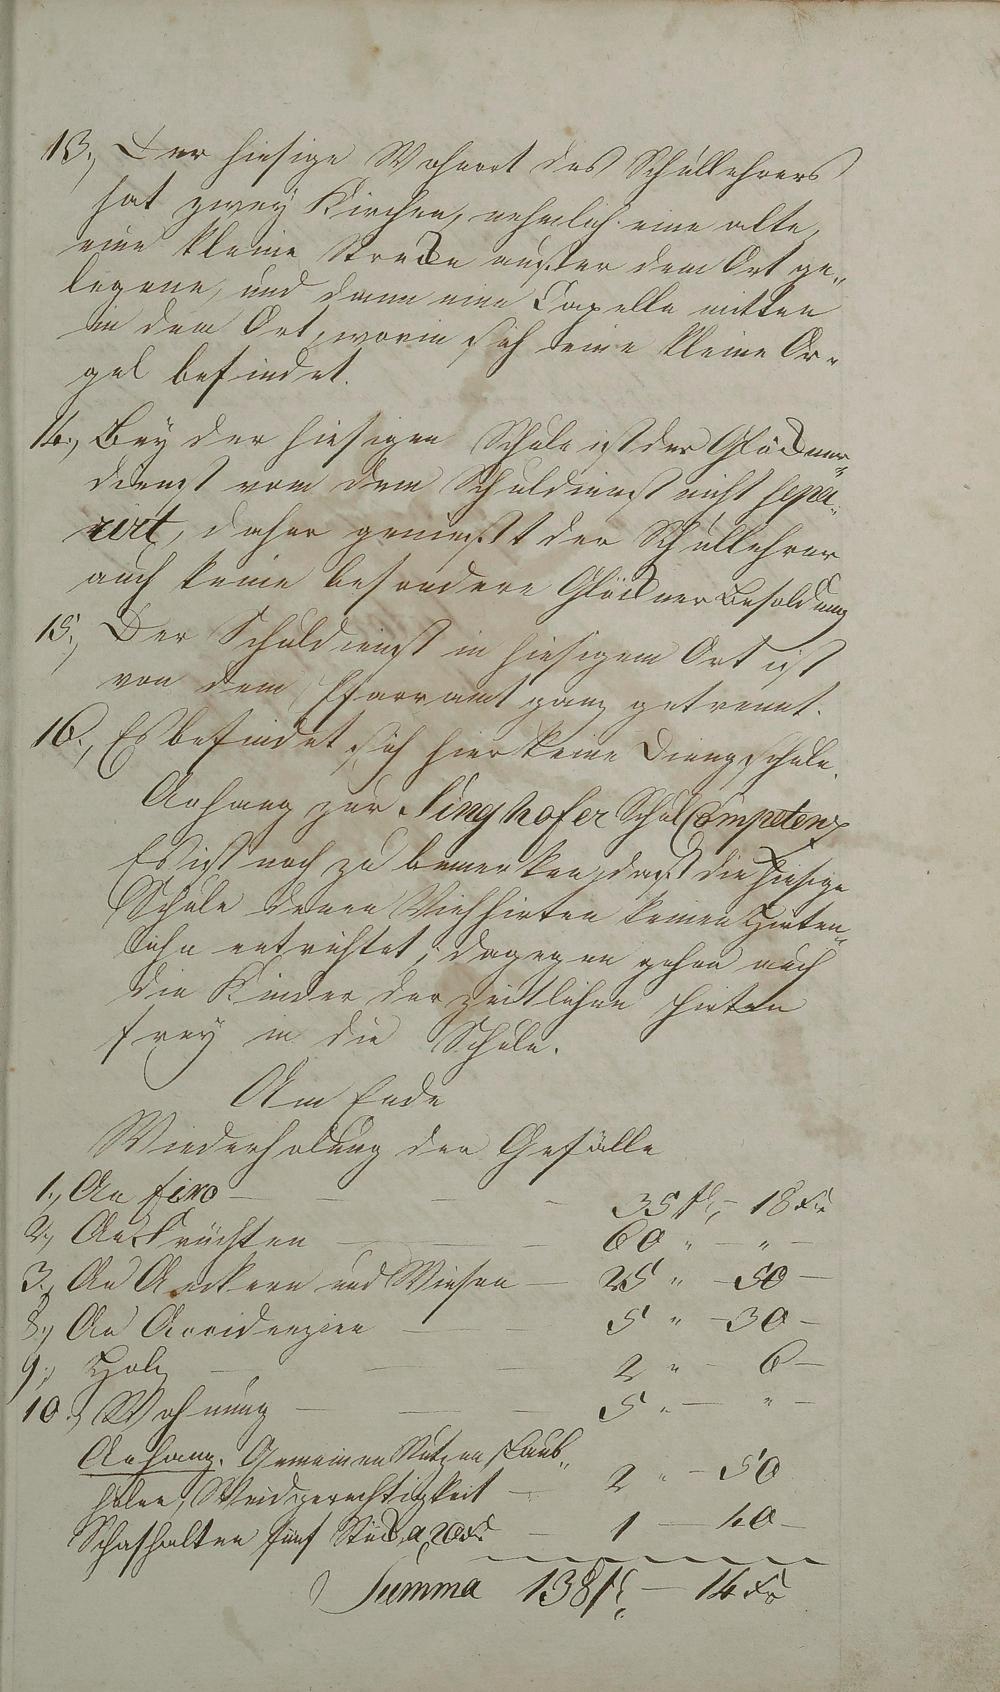 13., Der hiesige Wohnort des Schullehrers
hat zwey Kirchen, nehmlich eine alte,
eine kleine Strecke ausser dem Ort ge„
legene, und dann eine Capelle mitten
in dem Ort, worin sich eine kleine Or„
gel befindet.
14., Bey der hiesigen Schule ist der Glöckner„
dienst von dem Schuldienst nicht sepa„
rirt, daher geniesst der Schullehrer
auch keine besondere Glöckner Besoldung
15., Der Schuldienst in hiesigem Ort ist
von dem Pfarramt ganz getrennt.
16., Es befindet sich hier keine Dingschule.
Anhang zur Singhofer Schul Competenz
Es ist noch zu bemerken, dasst die hiesige
Schule denen Viehhirten keinen Hirten„
lohn entrichtet; dagegen gehen auch
die Kinder der zeitlichen Hirten
frey in die Schule.
Am Ende
Wiederholung der Gefälle
1., An fixo — — — 35 fl, – 18 Xr
2., An Früchten — — 60 „ — „ —
3., An Aeckern und Wiesen — 25 „ – 50 —
8., An Accidenzien — — 5 „ – 30 –
9., Holz — — — 2 „ – 6 –
10., Wohnung — — — 5 „ — „ –
Anhang. Gemeinen Nutzen, Laub„
holen, Weidgerechtigkeit — 2 „ – 50
Schafhalten fünf Stück, a 20 Xr — 1 — 40 –
Summa 138 fl, — 14 Xr